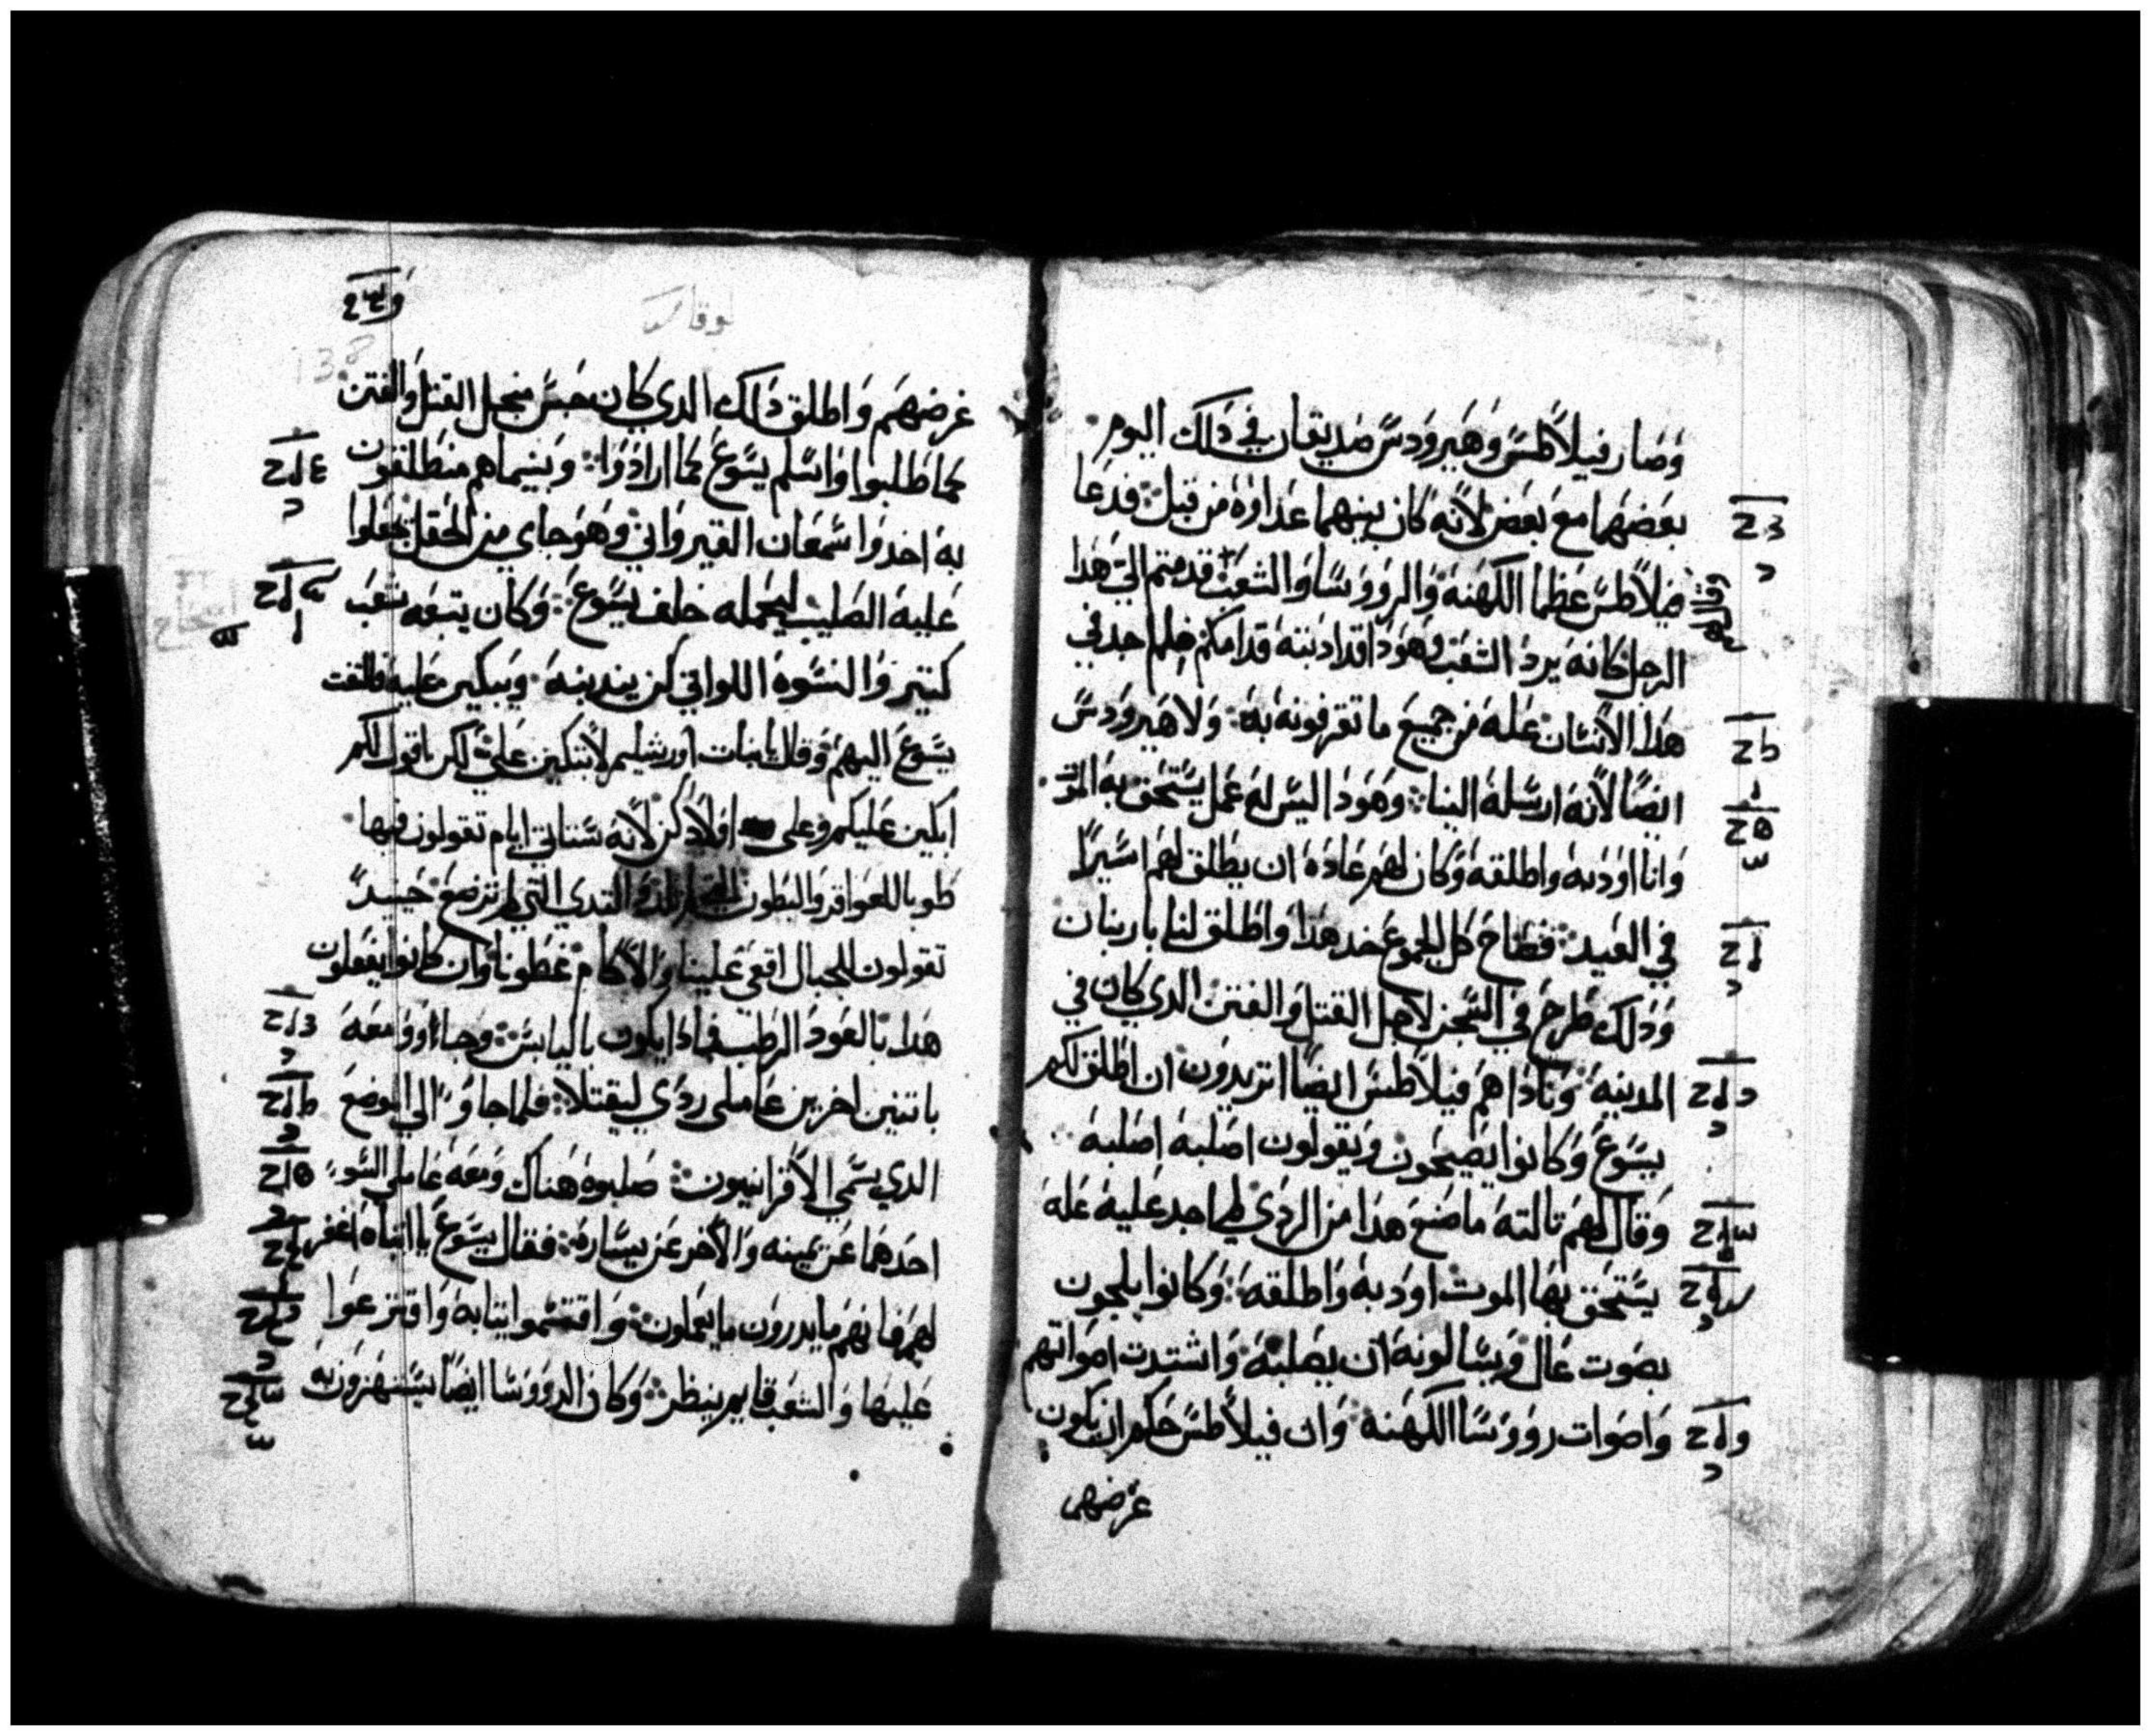 وصار فيلاطس وهيرودس صديقان في ذلك اليوم
بعضهما مع بعض لانه كان بينهما عداوه من قبل فدعا
فيلاطس عظما الكهنه والرووسا والشعب قدمتم الي هدا
الرجل كانه يرد الشعب وهودا قد ادنته قدامكم فلم اجد في
هدا الانسان عله من جميع ما تقرفونه به ولا هيرودس
ايضا لانه ارسله الينا وهودا ليس له عمل يستحق به الموت
وانا اودبه واطلقه وكان لهم عاده ان يطلق لهم اسيرا
في العيد فصاح كل الجموع خد هدا واطلق لنا باربان
ودلك طرح في السجن لاجل القتل والفتن الدي كان في
المدينه وناداهم فيلاطس ايضا اتريدون ان اطلق لكم
يسوع وكانوا يصيحون ويقولون اصلبه اصلبه
وقال لهم تالته ما صنع هدا من الردي لم اجد عليه عله
يستحق بها الموت اودبه واطلقه وكانوا يلجون
بصوت عال ويسالونه ان يصلبه واشتدت اصواتهم
واصوات رووسا الكهنه وان فيلاطس حكم ان يكون
غرضهم
لوقا
138
غرضهم واطلق دلك الدي كان حبس منجل القتل والفتن
كما طلبوا واسلم يسوع كما ارادوا وبينما هم منطلقون
به اخدوا سمعان القيرواني وهو جاي من الحقل فجعلوا
عليه الصليب ليحمله خلف يسوع وكان يتبعه شعب
كتير والنسوه اللواتي كن يندبنه ويبكين عليه فالتفت
يسوع اليهم وقال يا بنات اورشليم لا تبكين علي لكن اقول لكم
ابكين عليكم وعلي اولادكن لانه ستاتي ايام تقولون فيها
طوبا للعواقر والبطون التي لم تلد والتدي التي لم ترضع حينيد
تقولون للجبال اقعي علينا والاكام غطونا وان كانوا يفعلون
هدا بالعود الرطب فمادا يكون باليابس وجااوا معه
باتنين اخرين عاملي ردي ليقتلا فلما جاوا الي الموضع
الدي يسمي الاقرانيون صلبوه هناك ومعه عاملي السو
احدهما عن يمينه والاخر عن يساره فقال يسوع يا ابتاه اغفر
لهم فانهم ما يدرون ما يعملون واقتسموا تيابه واقترعوا
عليها والشعب قايم ينظر وكان الرووسا ايضا يستهزون به